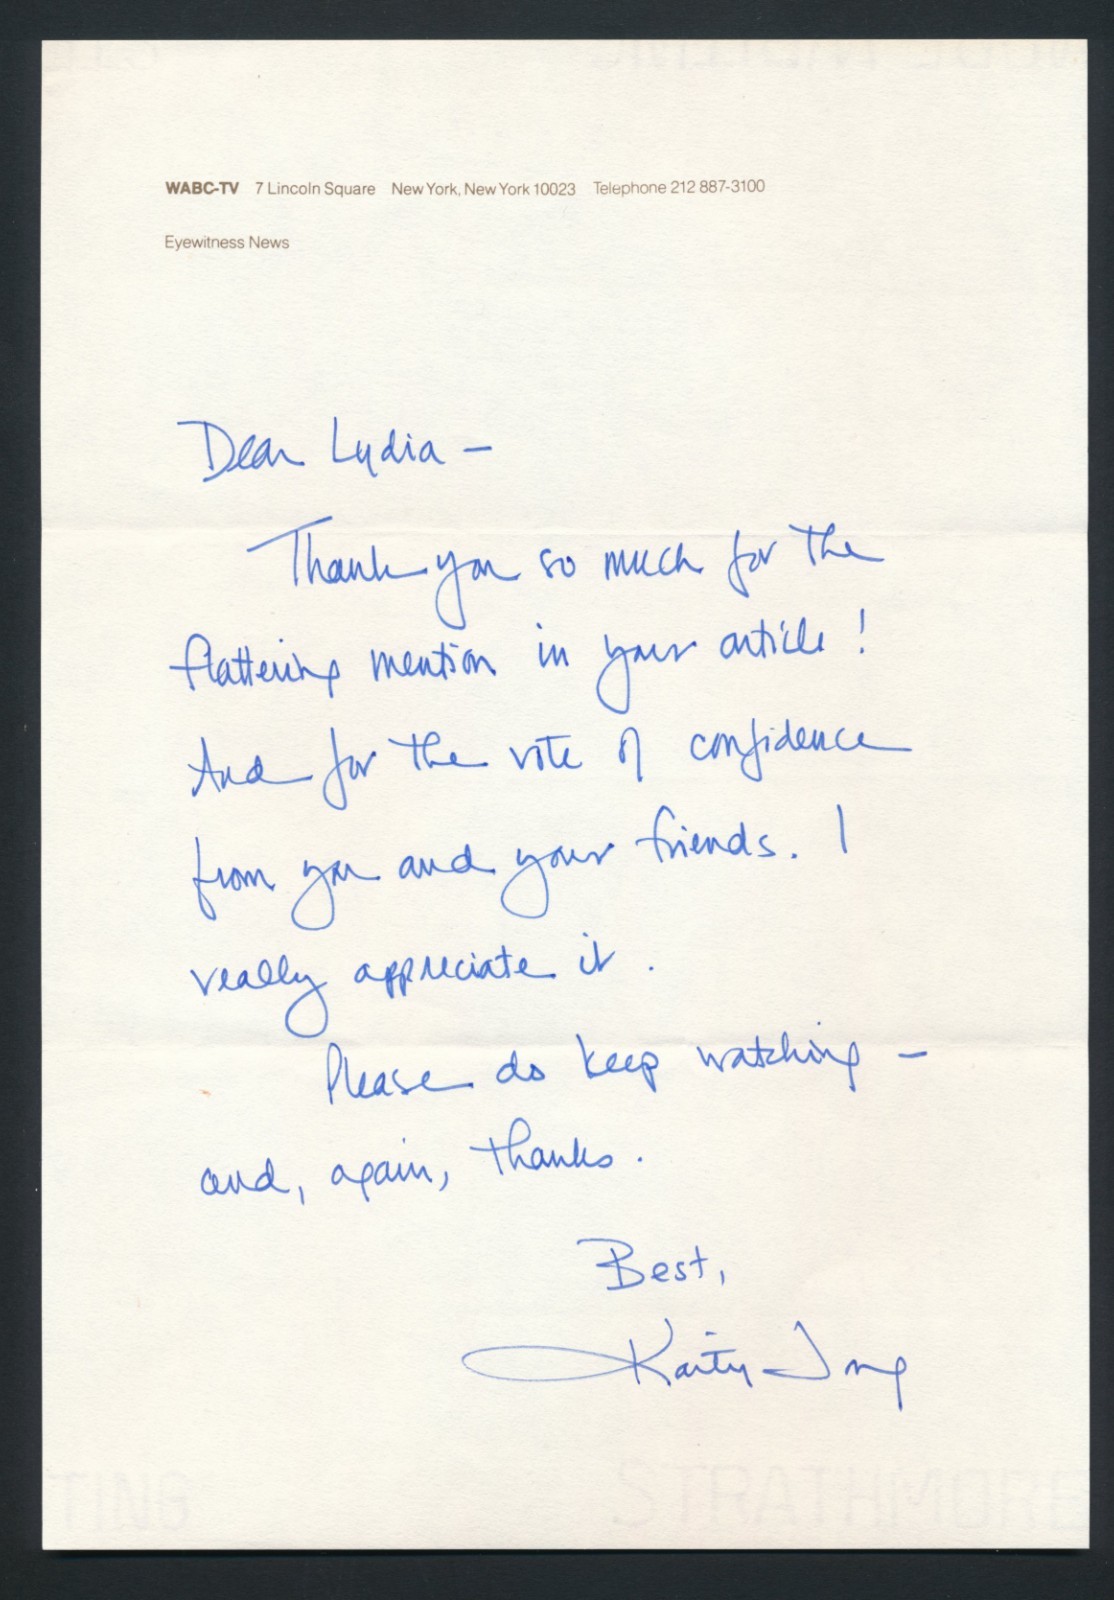 WABC-TV 7 Lincoln Square New York, New York 10023 Telephone 212 887-3100
Eyewitness News
Dear Lydia –
Thank you so much for the
flattering mention in your article!
And for the vote of confidence
from you and your friends. I
really appreciate it.
Please do keep watching –
and, again, thanks.
Best,
Kaity Tong
TING STRATHMORE